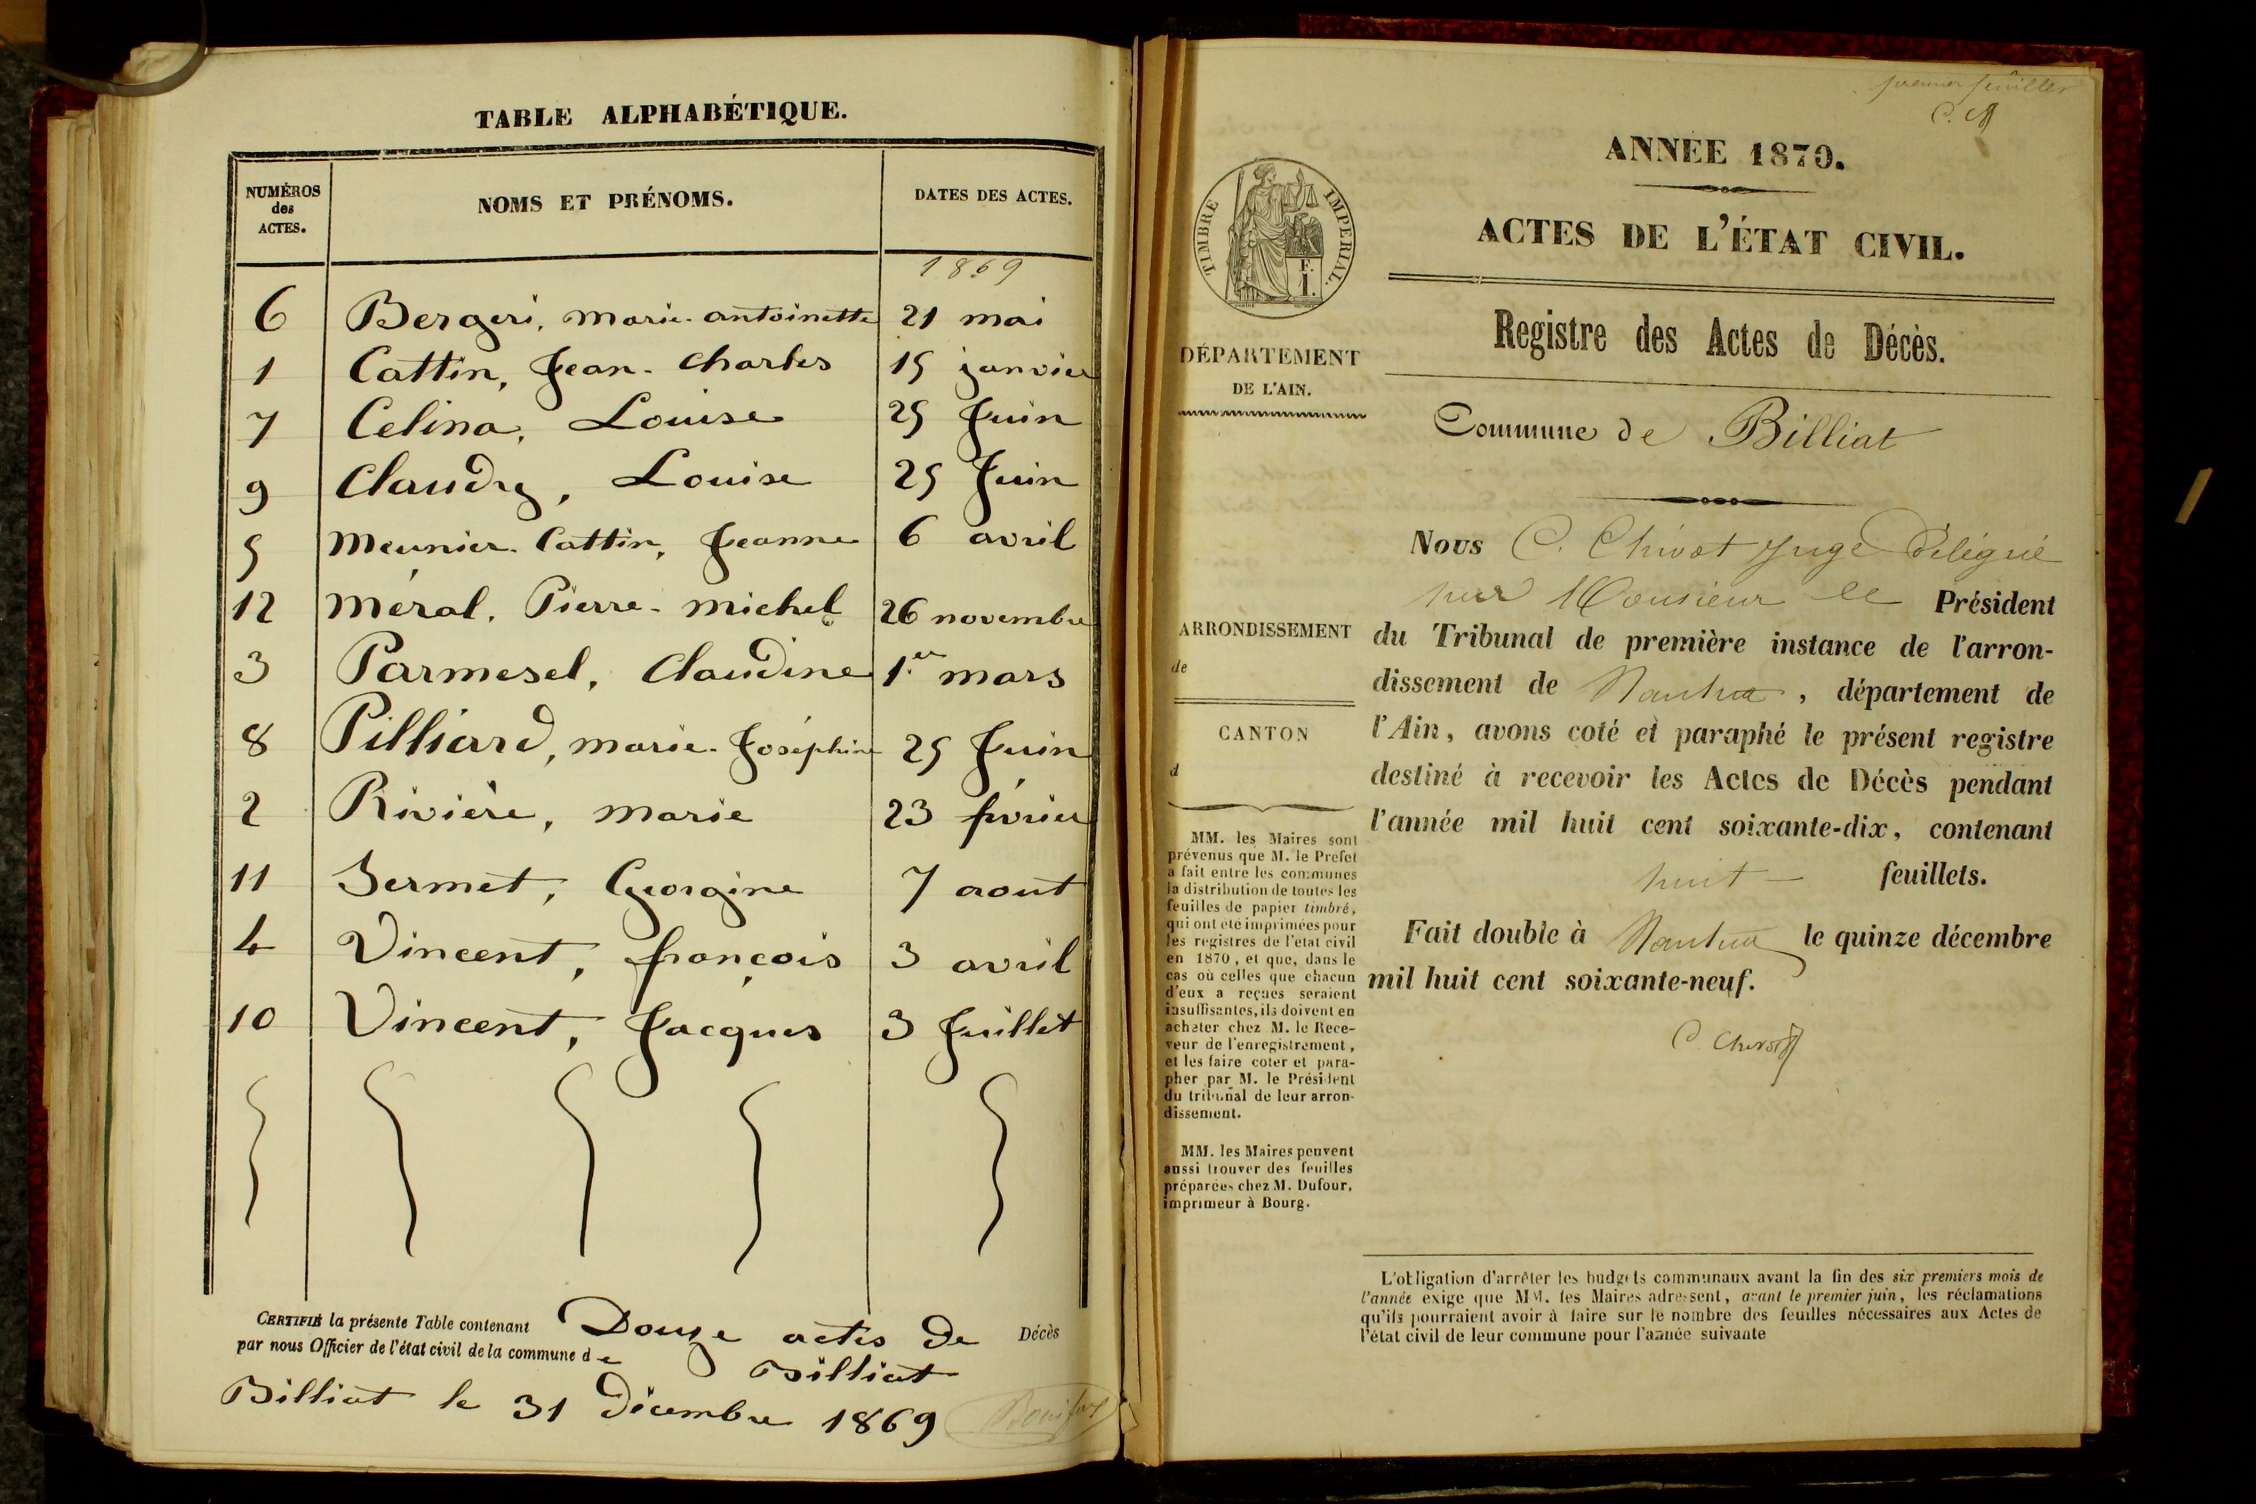 TABLE ALPHABÉTIQUE.
NUMÉROS des ACTES.
NOMS ET PRÉNOMS.
DATES DES ACTES.
1869
6 Bergeri, marie-antoinette 21 mai
1 Cattin, Jean-Charles 15 janvier
7 Celina, Louise 25 Juin
9 Claudy, Louise 25 Juin
5 Meunier-Cattin, Jeanne 6 avril
12 Méral, Pierre-michel 26 novembre
3 Parmesel, Claudine 1er mars
8 Pilliard, marie-Joséphine 25 Juin
2 Rivière, marie 23 février
11 Sermet, Georgine 7 aout
4 Vincent, françois 3 avril
10 Vincent, Jacques 3 Juillet
CERTIFIÉ la présente Table contenant Douze actes de Décès
par nous Officier de l'état civil de la commune de Billiat
Billiat le 31 Décembre 1869
premier feuillet
ANNÉE 1870.
ACTES DE L'ÉTAT CIVIL.
Registre des Actes de Décès.
Commune de Billiat
TIMBRE IMPERIAL.
F.
1.
DÉPARTEMENT
DE L'AIN.
ARRONDISSEMENT
de
CANTON
d
MM. les Maires sont
prévenus que M. le Préfet
a fait entre les communes
la distribution de toutes les
feuilles de papier timbré,
qui ont été imprimées pour
les registres de l'état civil
en 1870, et que, dans le
cas où celles que chacun
d'eux a reçues seraient
insuffisantes, ils doivent en
acheter chez M. le Rece-
veur de l'enregistrement,
et les faire coter et para-
pher par M. le Président
du tribunal de leur arron-
dissement.
MM. les Maires peuvent
aussi trouver des feuilles
préparées chez M. Dufour,
imprimeur à Bourg.
Nous C. Chivot Juge Délégué
par Monsieur le Président
du Tribunal de première instance de l'arron-
dissement de Nantua, département de
l'Ain, avons coté et paraphé le présent registre
destiné à recevoir les Actes de Décès pendant
l'année mil huit cent soixante-dix, contenant
huit feuillets.
Fait double à Nantua le quinze décembre
mil huit cent soixante-neuf.
C. Chivot
L'obligation d'arrêter les budgets communaux avant la fin des six premiers mois de
l'année exige que MM. les Maires adressent, avant le premier juin, les réclamations
qu'ils pourraient avoir à faire sur le nombre des feuilles nécessaires aux Actes de
l'état civil de leur commune pour l'année suivante